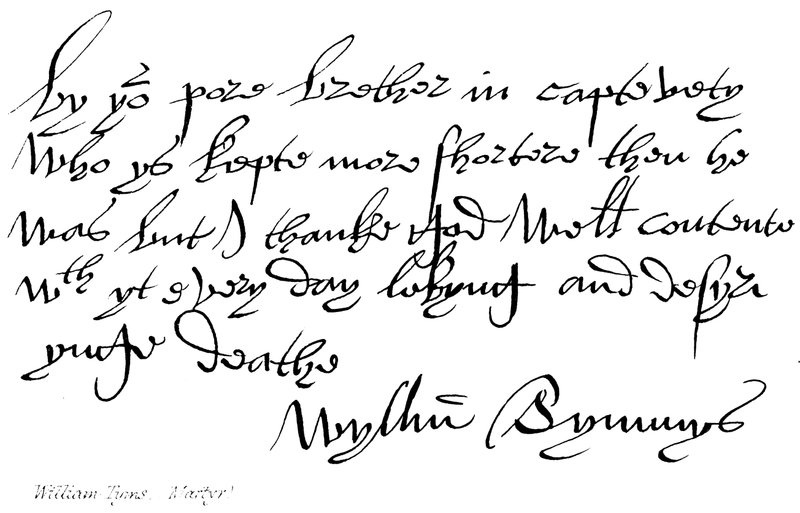 by yor pore brether in captevety
Who ys kepte more shortere then he
was but I thanke god well contente
wth yt every day lokyng and desyr
ynge deathe
Wyllm Tymmys
William Tyms. Martyr.